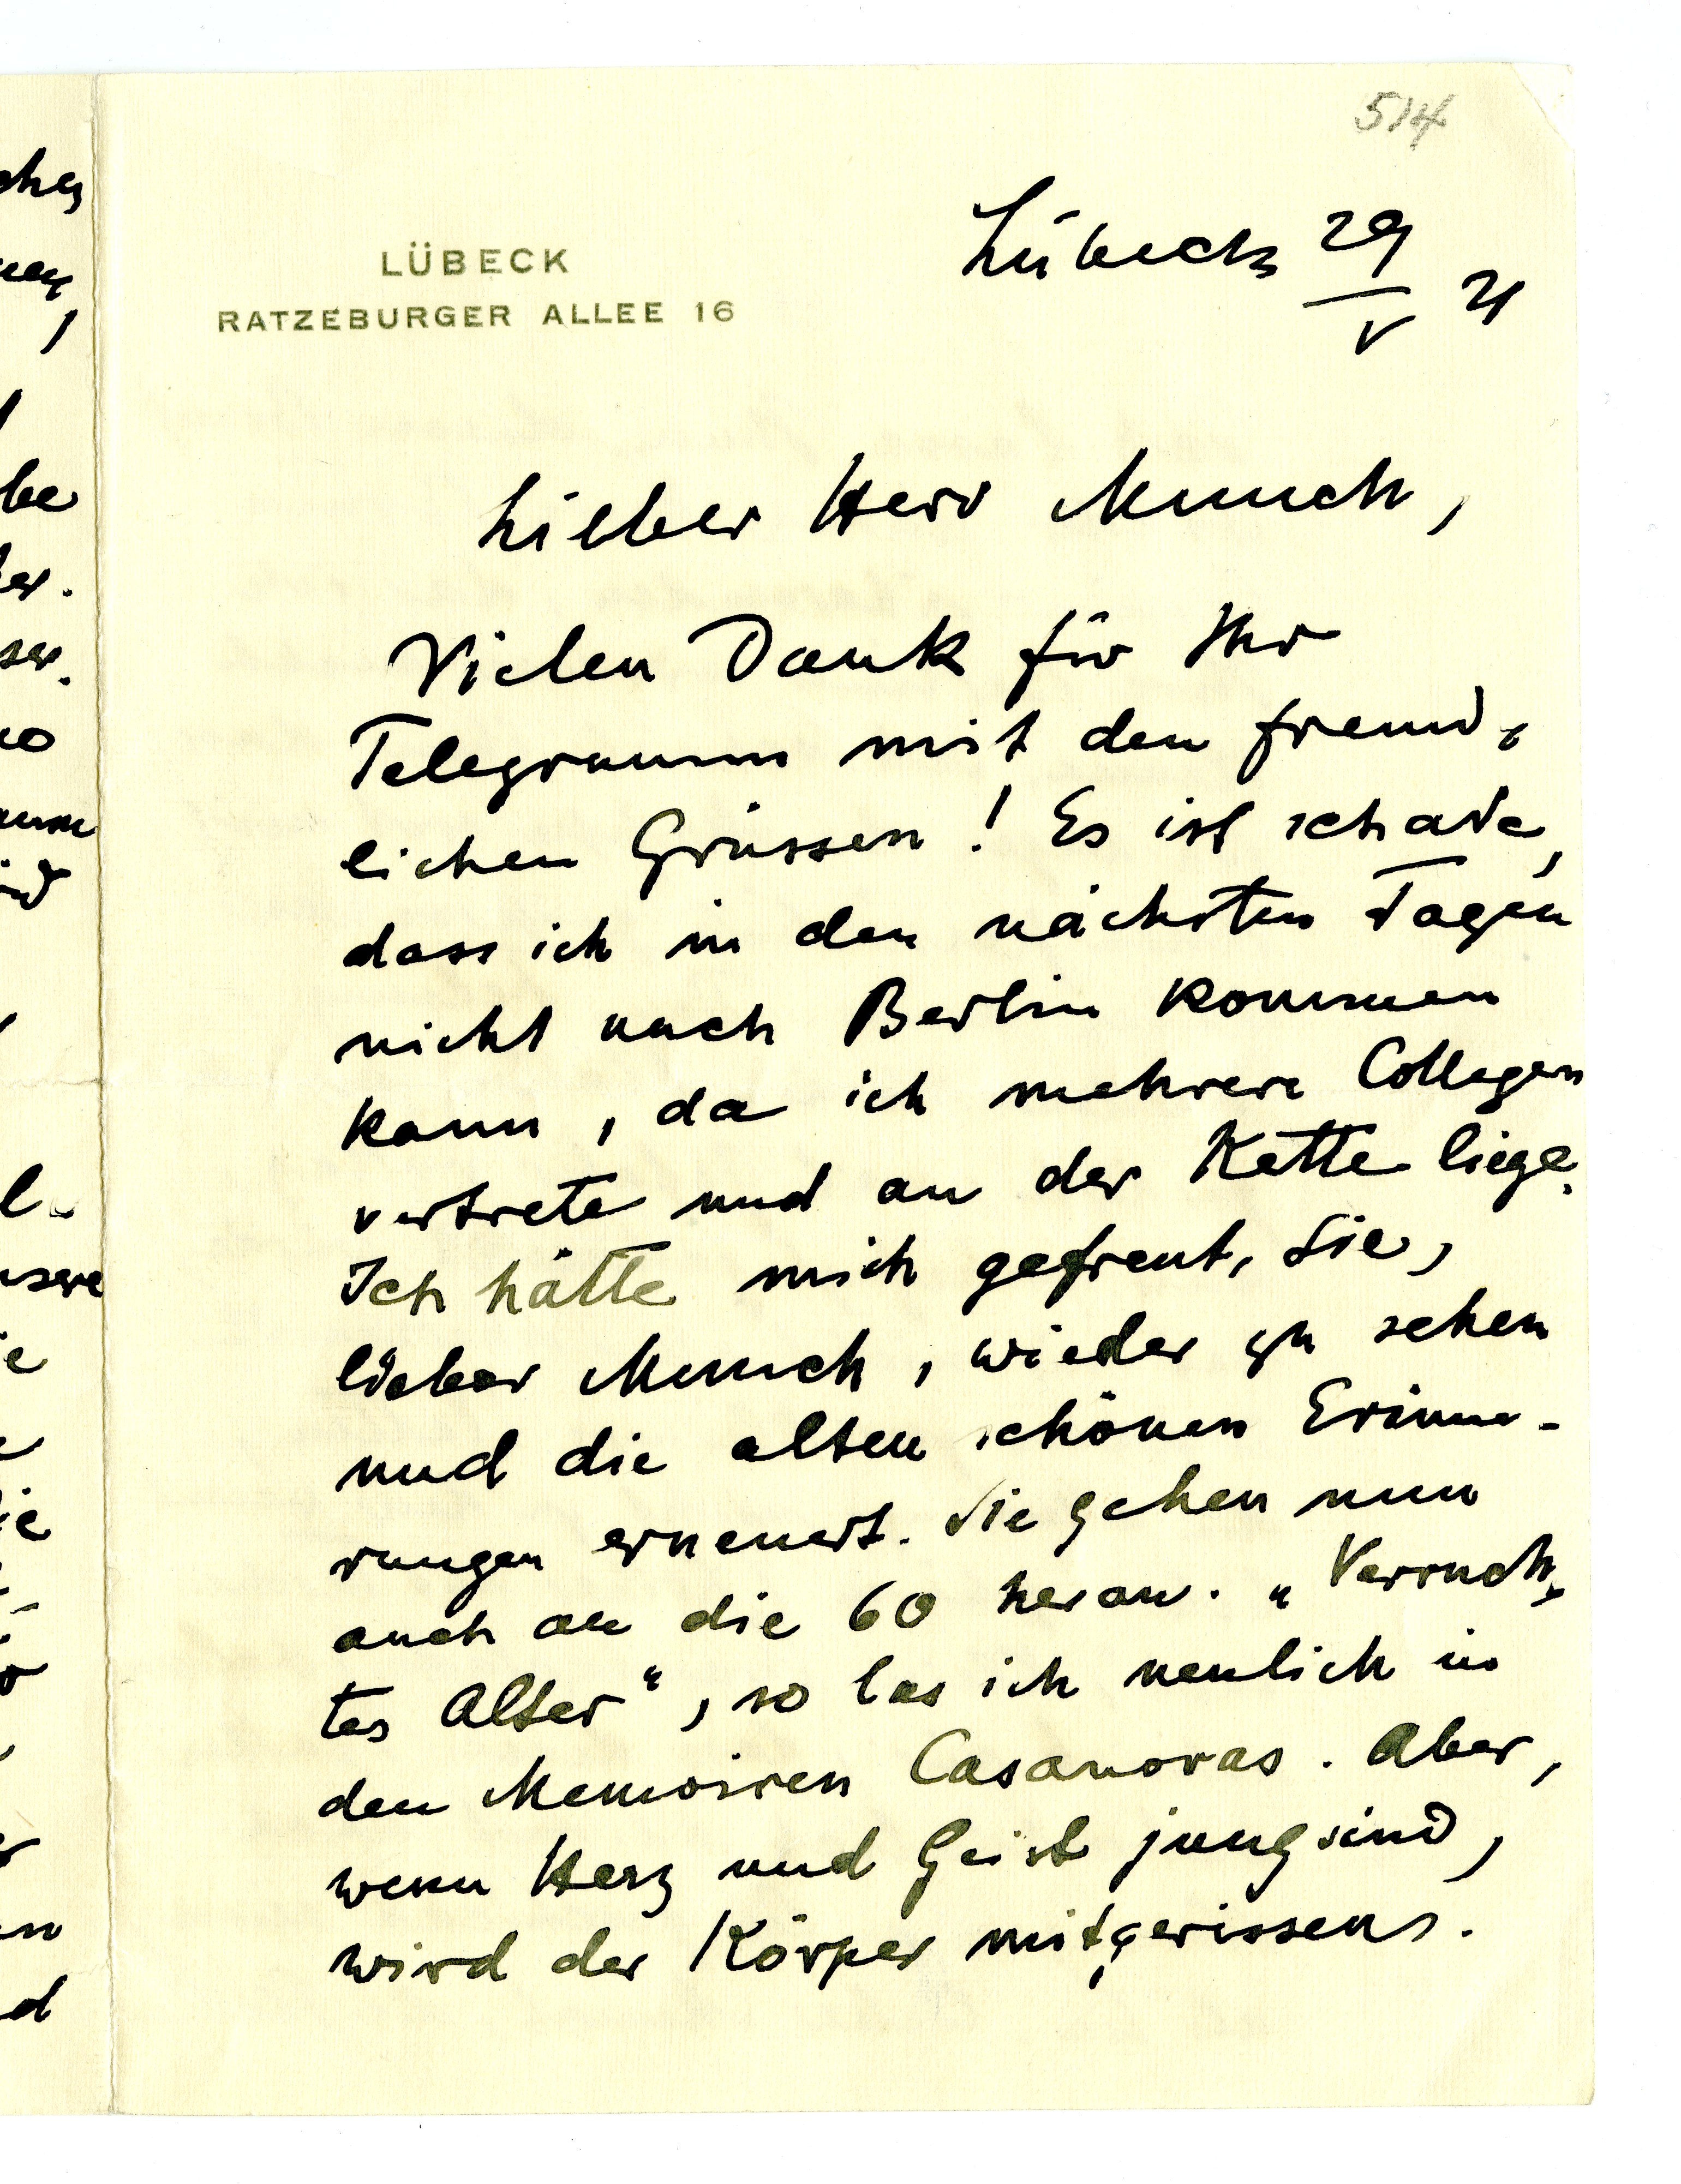 514
LÜBECK
RATZEBURGER ALLEE 16
Lübeck 29/V 21
Lieber Herr Munch,
Vielen Dank für Ihr
Telegramm mit den freund-
lichen Grüssen! Es ist schade,
dass ich in den nächsten Tagen
nicht nach Berlin kommen
kann, da ich mehrere Collegen
vertrete und an der Kette liege.
Ich hätte mich gefreut, Sie,
lieber Munch, wieder zu sehen
und die alten schönen Erinne-
rungen erneuert. Sie gehen nun
auch an die 60 heran. „Verruch-
tes Alter“, so las ich neulich in
den Memoiren Casanovas. Aber,
wenn Herz und Geist jung sind,
wird der Körper mitgerissen.